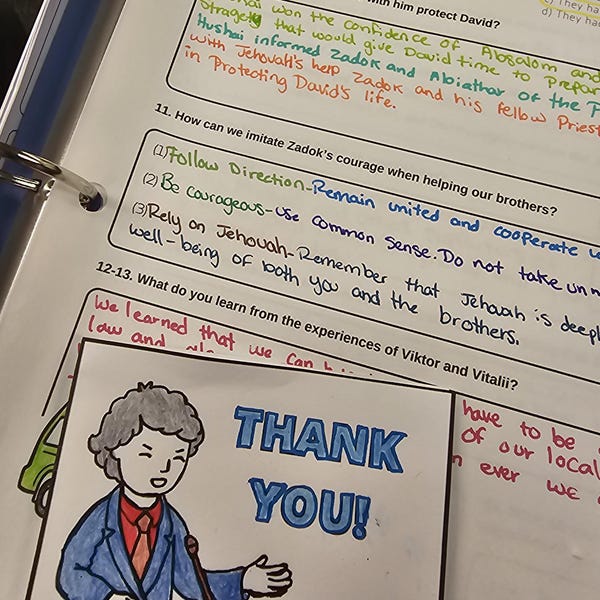 with him protect David?
c) They ha
d) They ha
won the confidence of Absalom and
Strategy that would give David time to Prepar
Hushai informed Zadok and Abiathar of the P
with Jehovah's help Zadok and his fellow Priest
in Protecting David's life.
11. How can we imitate Zadok's courage when helping our brothers?
(1) Follow Direction-Remain united and cooperate
(2) Be courageous-use common sense. Do not take
(3) Rely on Jehovah-Remember that Jehovah is deepl
well-being of both you and the brothers.
12-13. What do you learn from the experiences of Viktor and Vitalii?
We learned that we can have to be
law and of our local
ever we
THANK
YOU!